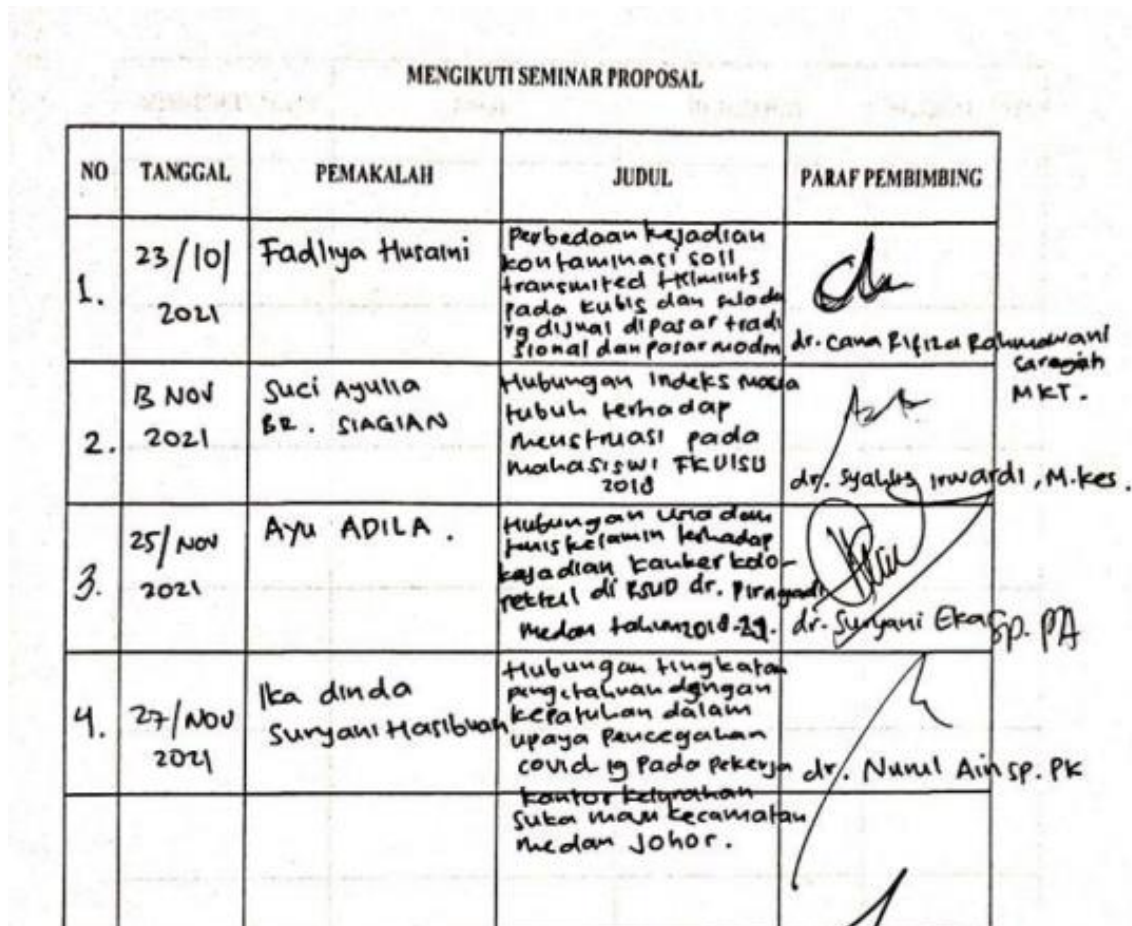 MENGIKUTI SEMINAR PROPOSAL
NO TANGGAL PEMAKALAH JUDUL PARAF PEMBIMBING
1.
23/10/
2021
Fadliya Husaini
Perbedaan kejadian
kontaminasi soil
transmited
pada kubis dan
yg dijual dipasar tradi
sional dan pasar modrn
dr. Cana Rifiza Rahmawani
Saragih
MKT.
2.
13 NOV
2021
Suci Ayulia
BR. SIAGIAN
Hubungan Indeks masa
tubuh terhadap
menstruasi pada
mahasiswi FKUISU
2018
dr. Irwardi, M.kes.
3.
25/NOV
2021
Ayu ADILA.
Hubungan dan
kelamin terhadap
kejadian kanker kolo-
di RSUD dr. Pirngadi
medan tahun
dr. Suryani Eka Sp. PA
4.
27/NOV
2021
Ika dinda
Suryani Hasibuan
Hubungan tingkatan
dengan
kepatuhan dalam
upaya Pencegahan
covid 19 Pada Pekerja
kantor kelurahan
Suka kecamatan
medan Johor.
dr. Nurul Ain sp. PK